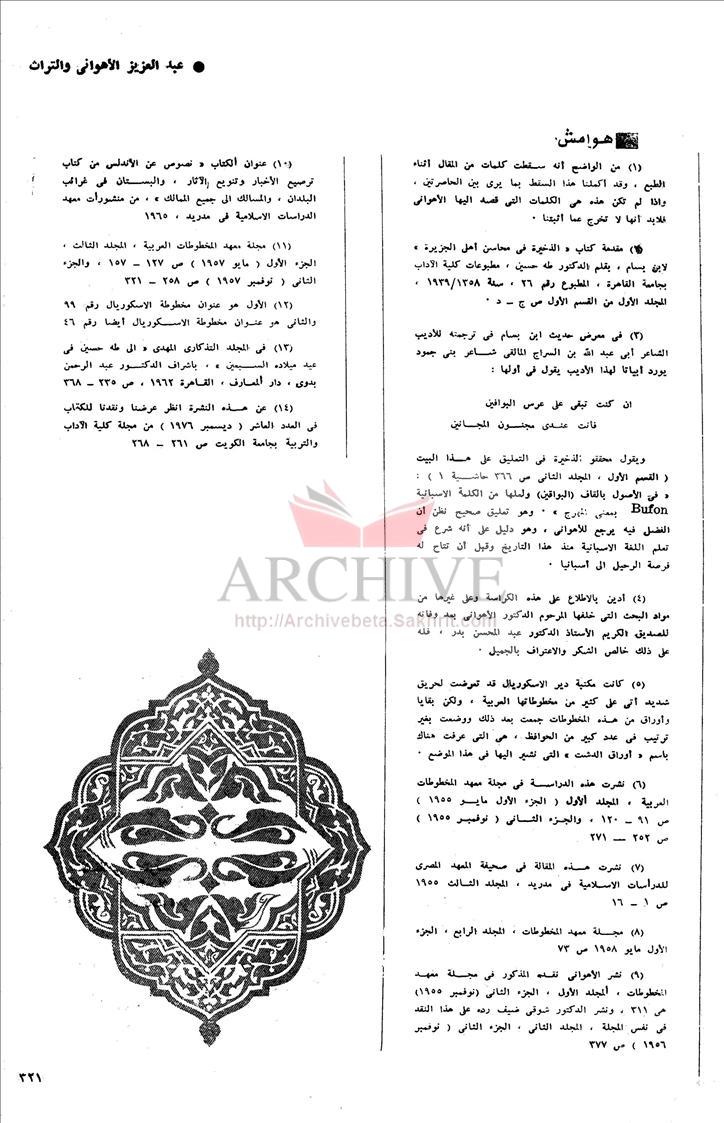 ● عبد العزيز الأهوانى والتراث
هوامش ·
(١) من الواضح أنه سقطت كلمات من المقال أثناء
الطبع ، وقد أكملنا هذا السقط بما يرى بين الحاصرتين ،
واذا لم تكن هذه هى الكلمات التى قصد اليها الأهوانى
فلابد أنها لا تخرج عما أثبتنا ·
(٢) مقدمة كتاب « الذخيرة فى محاسن أهل الجزيرة »
لابن بسام ، بقلم الدكتور طه حسين ، مطبوعات كلية الآداب
بجامعة القاهرة ، المطبوع رقم ٢٦ ، سنة ١٩٣٩/١٣٥٨ ،
المجلد الأول من القسم الأول ص ج ــ د ·
(٣) فى معرض حديث ابن بسام فى ترجمته للأديب
الشاعر أبى عبد الله بن السراج المالقى شاعر بنى حمود
يورد أبياتا لهذا الأديب يقول فى أولها :
ان كنت تبقى على عرس البوافين
فانت عندى مجنون المجانين
ويقول محققو الذخيرة فى التعليق على هذا البيت
( القسم الأول ، المجلد الثانى ص ٣٦٦ حاشية ١ ) :
« فى الأصول بالقاف (البواقين) ولعلها من الكلمة الاسبانية
Bufon بمعنى المهرج » · وهو تعليق صحيح نظن أن
الفضل فيه يرجع للأهوانى ، وهو دليل على أنه شرع فى
تعلم اللغة الاسبانية منذ هذا التاريخ وقبل أن تتاح له
فرصة الرحيل الى أسبانيا ·
(٤) أدين بالاطلاع على هذه الكراسة وعلى غيرها من
مواد البحث التى خلفها المرحوم الدكتور الأهوانى بعد وفاته
للصديق الكريم الأستاذ الدكتور عبد المحسن بدر ، فله
على ذلك خالص الشكر والاعتراف بالجميل ·
(٥) كانت مكتبة دير الاسكوريال قد تعرضت لحريق
شديد أتى على كثير من مخطوطاتها العربية ، ولكن بقايا
وأوراق من هذه المخطوطات جمعت بعد ذلك ووضعت بغير
ترتيب فى عدد كبير من الحوافظ ، هى التى عرفت هناك
باسم « أوراق الدشت » التى نشير اليها فى هذا الموضع ·
(٦) نشرت هذه الدراسة فى مجلة معهد المخطوطات
العربية ، المجلد الأول ( الجزء الأول مايو ١٩٥٥ )
ص ٩١ ــ ١٢٠ ، والجزء الثانى ( نوفمبر ١٩٥٥ )
ص ٢٥٢ ــ ٢٧١
(٧) نشرت هذه المقالة فى صحيفة المعهد المصرى
للدراسات الاسلامية فى مدريد ، المجلد الثالث ١٩٥٥
ص ١ ــ ١٦
(٨) مجلة معهد المخطوطات ، المجلد الرابع ، الجزء
الأول مايو ١٩٥٨ ص ٧٣
(٩) نشر الأهوانى نقده المذكور فى مجلة معهد
المخطوطات ، المجلد الأول ، الجزء الثانى (نوفمبر ١٩٥٥)
هى ٣١١ ، ونشر الدكتور شوقى ضيف رده على هذا النقد
فى نفس المجلة ، المجلد الثانى ، الجزء الثانى ( نوفمبر
١٩٥٦ ) ص ٣٧٧
(١٠) عنوان الكتاب « نصوص عن الأندلس من كتاب
ترصيع الأخبار وتنويع الآثار ، والبستان فى غرائب
البلدان ، والمسالك الى جميع الممالك » ، من منشورات معهد
الدراسات الاسلامية فى مدريد ، ١٩٦٥
(١١) مجلة معهد المخطوطات العربية ، المجلد الثالث ،
الجزء الأول ( مايو ١٩٥٧ ) ص ١٢٧ ــ ١٥٧ ، والجزء
الثانى ( نوفمبر ١٩٥٧ ) ص ٢٥٨ ــ ٣٢١
(١٢) الأول هو عنوان مخطوطة الاسكوريال رقم ٩٩
والثانى هو عنوان مخطوطة الاسكوريال أيضا رقم ٤٦
(١٣) فى المجلد التذكارى المهدى « الى طه حسين فى
عيد ميلاده السبعين » ، باشراف الدكتور عبد الرحمن
بدوى ، دار المعارف ، القاهرة ١٩٦٢ ، ص ٢٣٥ ــ ٣٦٨
(١٤) عن هذه النشرة انظر عرضنا ونقدنا للكتاب
فى العدد العاشر ( ديسمبر ١٩٧٦ ) من مجلة كلية الآداب
والتربية بجامعة الكويت ص ٢٦١ ــ ٢٦٨
ARCHIVE
http://Archivebeta.Sakhrit.com
٣٢١